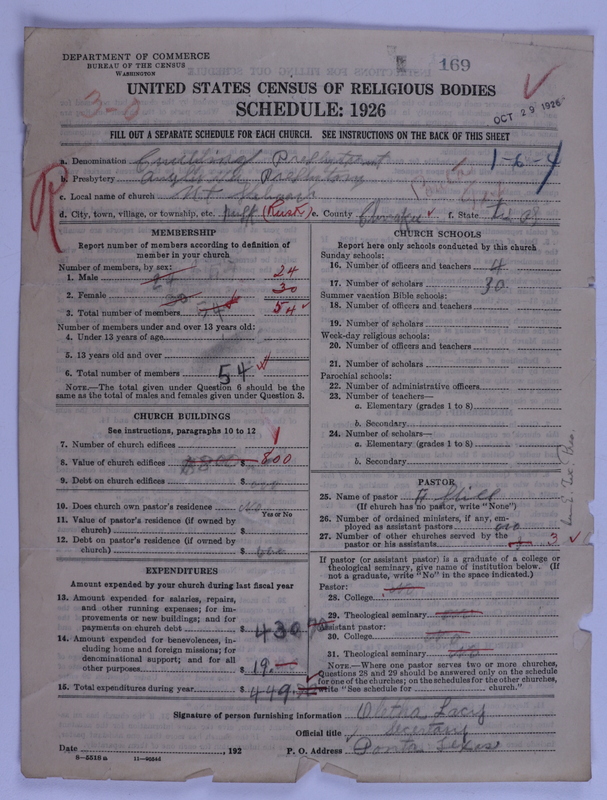 DEPARTMENT OF COMMERCE
BUREAU OF THE CENSUS
WASHINGTON
169
UNITED STATES CENSUS OF RELIGIOUS BODIES
SCHEDULE: 1926
OCT 29 1926
3-0
FILL OUT A SEPARATE SCHEDULE FOR EACH CHURCH. SEE INSTRUCTIONS ON THE BACK OF THIS SHEET
1-6-4
a. Denomination
b. Presbytery Presbytery
c. Local name of church Mt
d. City, town, village, or township, etc. (Rusk) e. County Cherokee f. State
R
MEMBERSHIP
Report number of members according to definition of member in your church
Number of members, by sex:
1. Male 24
2. Female 30
3. Total number of members 54
Number of members under and over 13 years old:
4. Under 13 years of age
5. 13 years old and over
6. Total number of members 54
NOTE.—The total given under Question 6 should be the same as the total of males and females given under Question 3.
CHURCH BUILDINGS
See instructions, paragraphs 10 to 12
7. Number of church edifices
8. Value of church edifices $ 800
9. Debt on church edifices $
10. Does church own pastor's residence No
Yes or No
11. Value of pastor's residence (if owned by church) $
12. Debt on pastor's residence (if owned by church) $
EXPENDITURES
Amount expended by your church during last fiscal year
13. Amount expended for salaries, repairs, and other running expenses; for improvements or new buildings; and for payments on church debt $ 430
14. Amount expended for benevolences, including home and foreign missions; for denominational support; and for all other purposes $ 19.
15. Total expenditures during year $ 449.
CHURCH SCHOOLS
Report here only schools conducted by this church
Sunday schools:
16. Number of officers and teachers 4
17. Number of scholars 30
Summer vacation Bible schools:
18. Number of officers and teachers
19. Number of scholars
Week-day religious schools:
20. Number of officers and teachers
21. Number of scholars
Parochial schools:
22. Number of administrative officers
23. Number of teachers—
a. Elementary (grades 1 to 8)
b. Secondary
24. Number of scholars—
a. Elementary (grades 1 to 8)
b. Secondary
PASTOR
25. Name of pastor Hill
(If church has no pastor, write "None")
26. Number of ordained ministers, if any, employed as assistant pastors
27. Number of other churches served by the pastor or his assistants 3
If pastor (or assistant pastor) is a graduate of a college or theological seminary, give name of institution below. (If not a graduate, write "No" in the space indicated.)
Pastor:
28. College No
29. Theological seminary
Assistant pastor:
30. College No
31. Theological seminary
NOTE.—Where one pastor serves two or more churches, Questions 28 and 29 should be answered only on the schedule for one of the churches; on the schedules for the other churches, write "See schedule for church."
Signature of person furnishing information Lacy
Official title Secretary
Date 192
P. O. Address Ponta Texas
8—5518a 11—90544